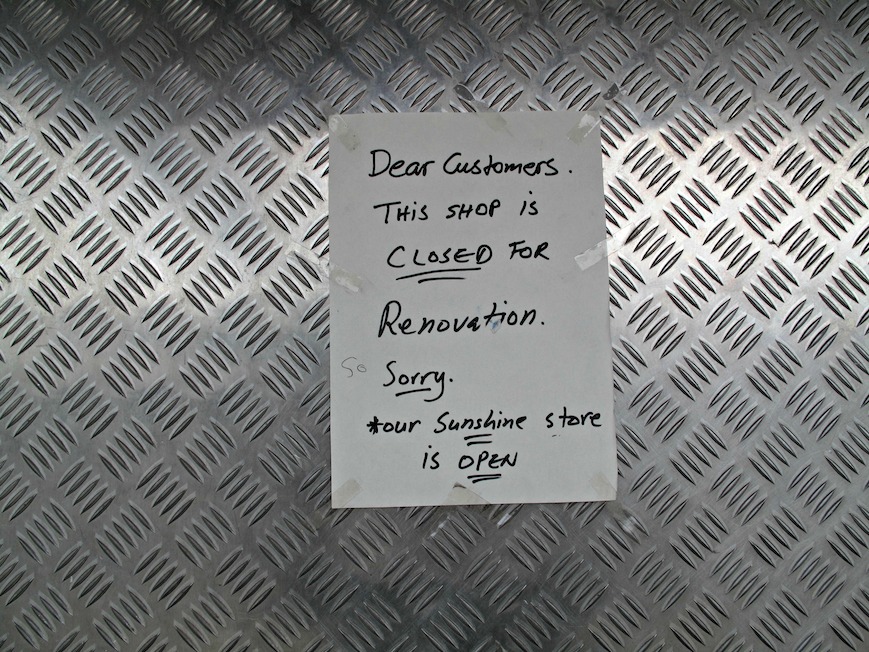 Dear Customers.
THIS SHOP is
CLOSED FOR
Renovation.
So Sorry.
*our Sunshine store
is OPEN